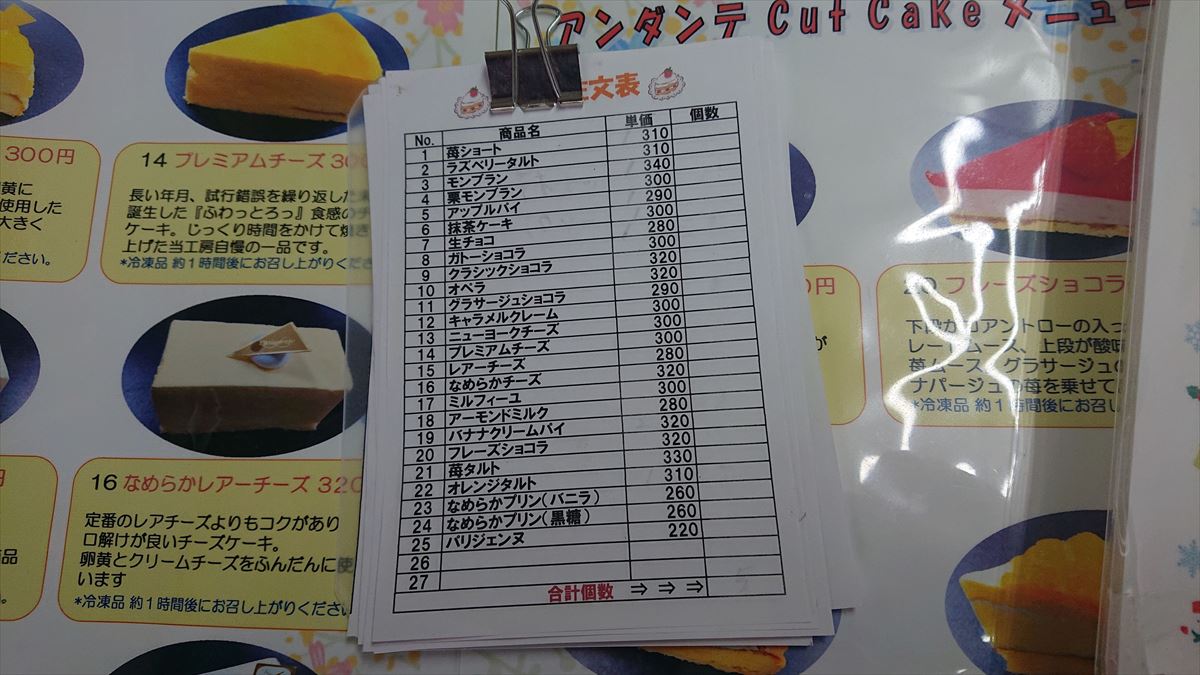 アンダンテ Cut Cake メニュー
文表
No. 商品名 単価 個数
1 苺ショート 310
2 ラズベリータルト 310
3 モンブラン 340
4 栗モンブラン 300
5 アップルパイ 290
6 抹茶ケーキ 300
7 生チョコ 280
8 ガトーショコラ 300
9 クラシックショコラ 320
10 オペラ 320
11 グラサージュショコラ 290
12 キャラメルクレーム 300
13 ニューヨークチーズ 300
14 プレミアムチーズ 300
15 レアーチーズ 280
16 なめらかチーズ 320
17 ミルフィーユ 300
18 アーモンドミルク 280
19 バナナクリームパイ 320
20 フレーズショコラ 320
21 苺タルト 330
22 オレンジタルト 310
23 なめらかプリン(バニラ) 260
24 なめらかプリン(黒糖) 260
25 パリジェンヌ 220
26
27
合計個数 ⇒ ⇒ ⇒
300円
黄に
使用した
大きく
ださい。
14 プレミアムチーズ 300
長い年月、試行錯誤を繰り返した
誕生した『ふわっとろっ』食感のチ
ケーキ。じっくり時間をかけて焼き
上げた当工房自慢の一品です。
*冷凍品 約1時間後にお召し上がりくださ
16 なめらかレアーチーズ 320
定番のレアチーズよりもコクがあり
口解けが良いチーズケーキ。
卵黄とクリームチーズをふんだんに使
います
*冷凍品 約1時間後にお召し上がりください
円
品
0円
が
20 フレーズショコラ
下段がコアントローの入っ
レームース、上段が酸味
苺ムース。グラサージュの
ナパージュの苺を乗せて
*冷凍品 約1時間後にお召し